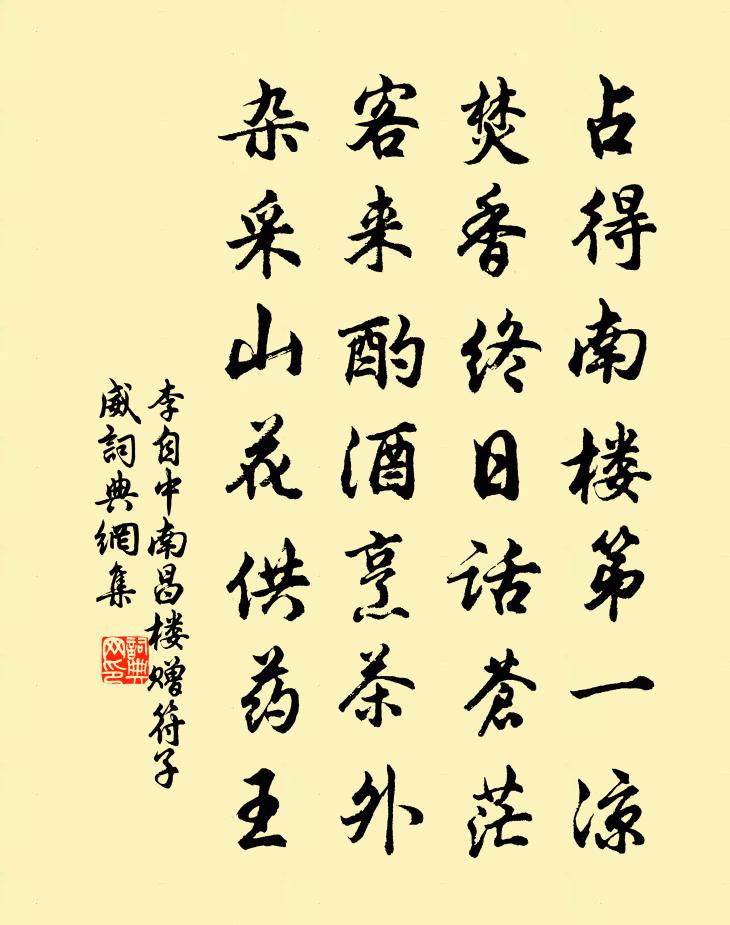 占得南楼第一凉
焚香终日话蒼茫
客来酌酒烹茶外
杂采山花供药王
李自中南昌楼赠符子
威詞典網集
詞典
网印